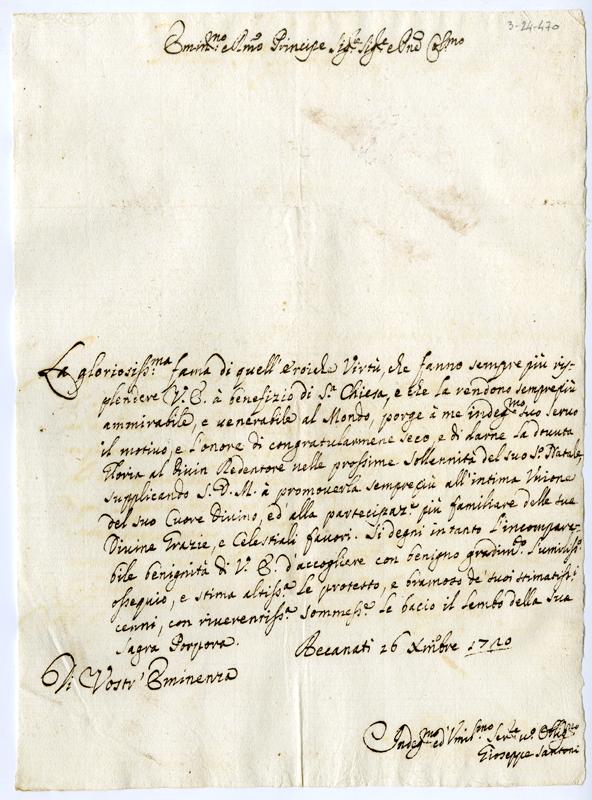 3-24-470
Emin.mo e Rmo Principe Sig.re Sig.re e Pne Col.mo
La gloriosiss.ma fama di quell'eroiche Virtù, che fanno sempre più ris-
plendere V. E. à benefizio di S.ta Chiesa, e che la rendono sempre più
ammirabile, e venerabile al Mondo, porge à me indeg.mo suo servo
il motivo, e l'onore di congratularmene seco, e di darne la dovuta
Gloria al Divin Redentore nelle prossime sollennità del suo S.o Natale,
supplicando S. D. M. à promoverla sempre più all'intima Unione
del suo Cuore Divino, ed'alla partecipaz.e più familiare delle sue
Divine Grazie, e Celestiali favori. Si degni intanto l'incompara-
bile benignità di V. E. d'accogliere con benigno gradim.to l'umiliss.o
ossequio, e stima altiss.a le protesto, e bramoso de' suoi stimatiss.i
cenni, con riverentiss.a sommess.e le bacio il lembo della sua
sagra Porpora. Recanati 16 Xmbre 1720
Di Vostr'Eminenza
Indeg.mo ed Umil.mo Ser.re Obblig.mo
Gioseppe Santoni